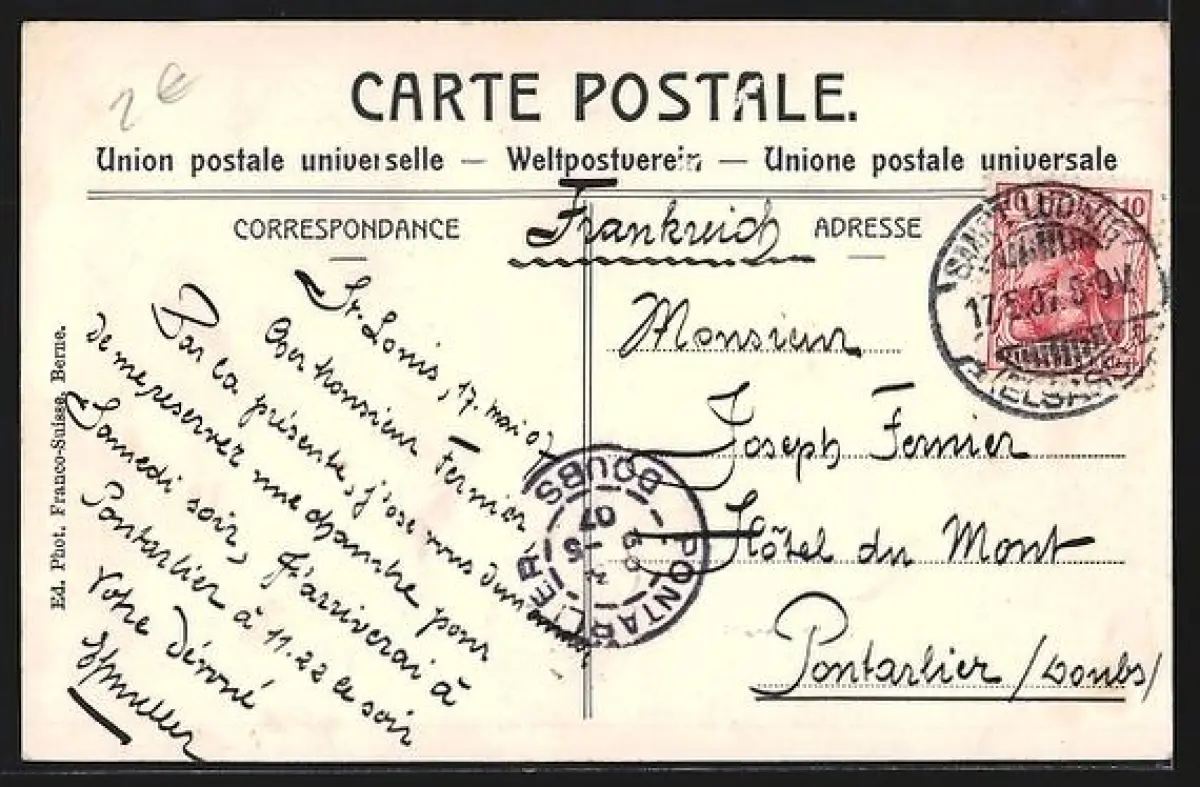 2 €
CARTE POSTALE.
Union postale universelle — Weltpostverein — Unione postale universale
CORRESPONDANCE
Frankreich
ADRESSE
St. Louis, 17. mai 07
Cher Monsieur Fernier
Par la présente, j'ose vous demander
de me reserver une chambre pour
Samedi soir, J'arriverai à
Pontarlier à 11.22 le soir
Votre Dévoué
Spmuller
Monsieur
Joseph Fernier
Hôtel du Mont
Pontarlier /Doubs/
10
10
SANKT LUDWIG
17.5.07. 8-9V.
(ELSASS)
PONTARLIER
DOUBS
5
07
Ed. Phot. Franco-Suisse, Berne.